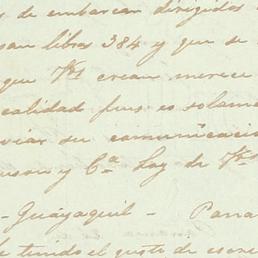 de embarcan dirigidos
san libros 384 y que se
que Vs crean merece
calidad pues es solame
viar su comunicacio
uson y Cª Soy de Vs
- Guayaquil - Pana
tenido el gusto de